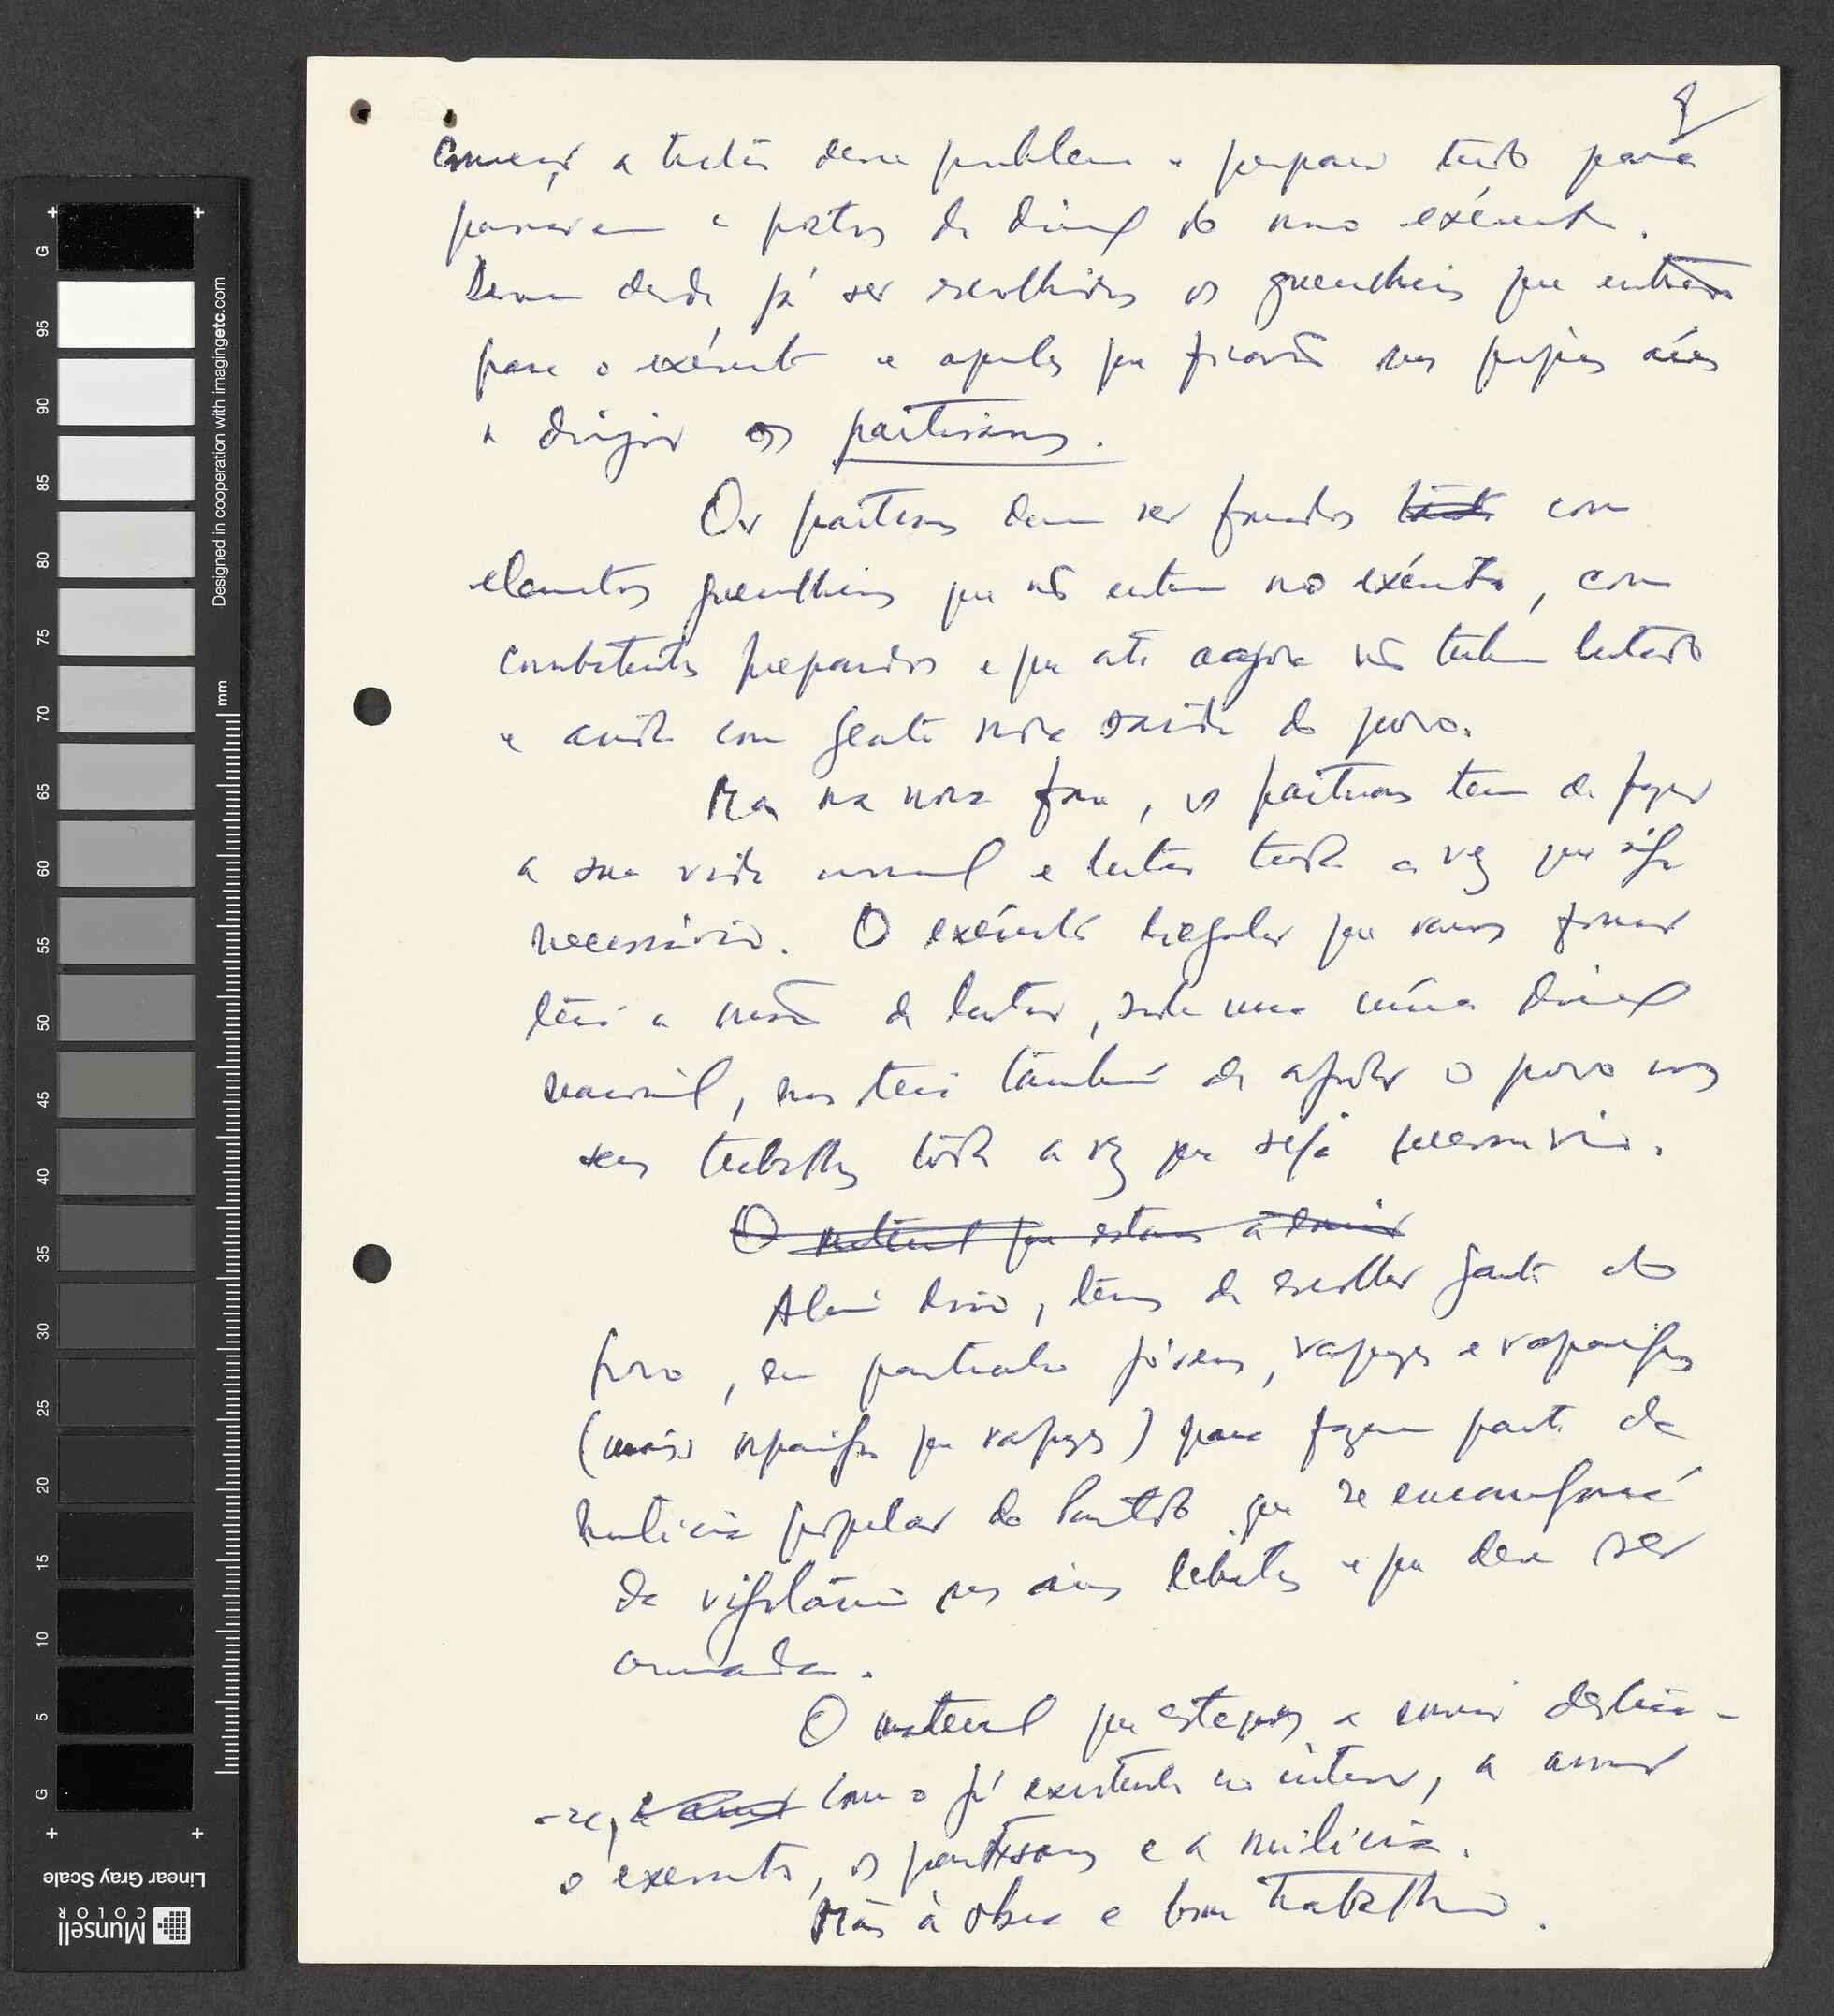 começar a tratar desse problema e preparar tudo para
passarem a postos de direcção do novo exército.
Devem desde já ser escolhidos os guerrilheiros que entrarão
para o exército e aqueles que ficarão nas próprias áreas
a dirigir os partisanos.
Os partisanos devem ser formados com
elementos guerrilheiros que não entrem no exército, com
combatentes preparados e que até agora não tenham lutado
e ainda com gente nova saída do povo.
Mas na nova fase, os partisanos tem de fazer
a sua vida normal e lutar toda a vez que seja
necessário. O exército regular que vamos formar
terá a missão de lutar, sob uma única direcção
nacional, mas terá também de ajudar o povo nos
seus trabalhos tôda a vez que seja necessário.
O material que estamos a enviar
Além disso, temos de escolher gente do
povo, em particular jóvens, rapazes e raparigas
(mais raparigas que rapazes) para fazerem parte da
milicia popular do Partido que se encarregará
da vigilância nas áreas libertadas e que deve ser
armada.
O material que estamos a enviar destina-
-se, com o já existente no interior, a armar
o exercito, os partisans e a milicia.
Mãos à obra e bom trabalho.
G 95 90 85 80 75 70 65 60 55 50 45 40 35 30 25 20 15 10 5 G
Designed in cooperation with imagingetc.com
mm
Linear Gray Scale
Munsell
COLOR